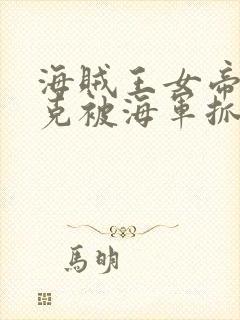 海賊王女帝
克被海軍抓
馬明